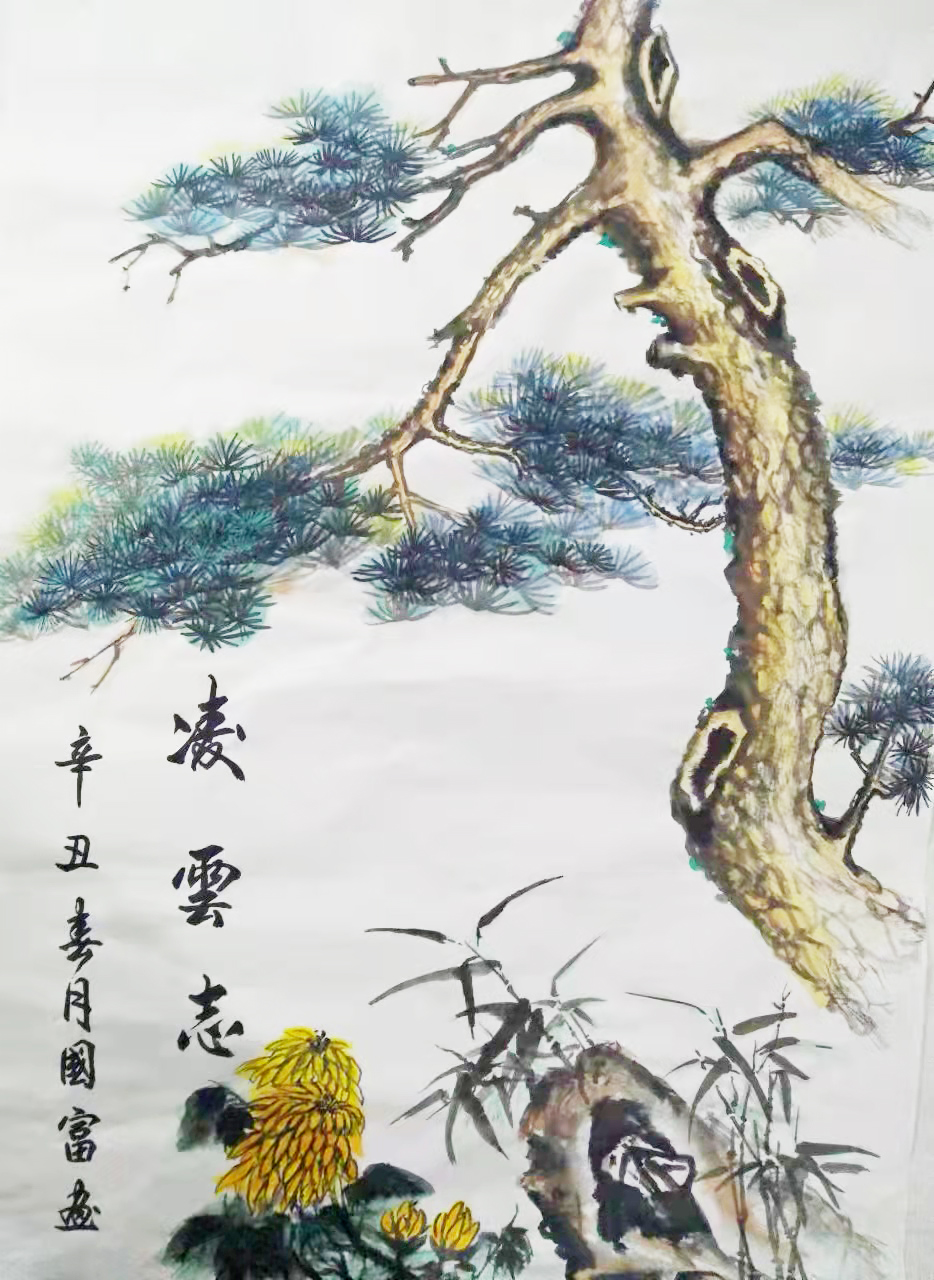 凌雲志
辛丑春月國富畫